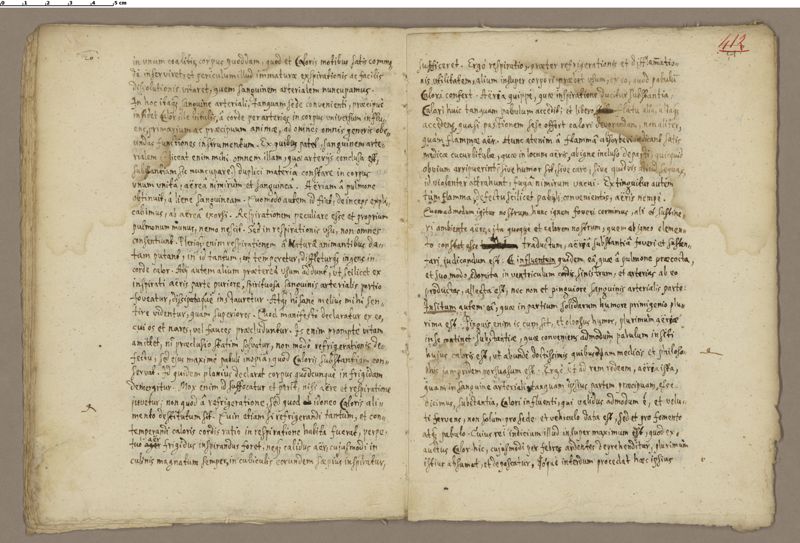 0 1 2 3 4 5 cm
20
in unum coalitis corpus quoddam, quod et Caloris motibus satis commo
de inserviret, et periculum illud immaturae expirationis ac facilis
dissolutionis vitaret, quem sanguinem arterialem nuncupamus.
In hoc igitur sanguine arteriali, tanquam sede convenienti, praecipue
insidet Calor ille influus, a corde per arterias in corpus universum influ
ens, primarium ac praecipuum animae, ad omnes omnis generis obe
undas functiones instrumentum. Ex quibus patet, sanguinem arte
rialem liceat enim mihi omnem illam, quae arteriis conclusa est,
substantiam sic nuncupare, duplici materia constare in corpus
unum unita, aerea nimirum et sanguinea. Aeriam a pulmone
obtinuit, a liene sanguineam. Quomodo autem id fiat, deinceps expli
cabimus, ab aerea exorsi. Respirationem peculiare esse et proprium
pulmonum munus, nemo nescit. Sed in respirationis usu, non omnes
consentiunt. Plerique enim respirationem a Natura animantibus da-
tam putant, in id tantum, ut temperetur, diffleturque ingens in
corde calor. Ast autem alium praeterea usum addunt, ut scilicet ex
inspirati aeris parte puriore, spirituosa sanguinis arterialis portio
foveatur, dissipataque instauretur. Atqui hi sane melius mihi sen-
tire videntur, quam superiores. Quod manifesto declaratur ex eo,
cui os et nares, vel fauces praecluduntur. Is enim prompte vitam
amittet, ni praeclusio statim solvatur, non modo refrigerationis de
fectu, sed ejus maxime pabuli inopia, quod Caloris substantiam con
servat. Id quidem planius declarat corpus quodcunque in frigidam
demergitur. Mox enim id suffocatur et perit, nisi aere et respiratione
juvetur, non quod a refrigeratione, sed quod idoneo Caloris ali
mento destitutum sit. Quin etiam si refrigerandi tantum, et con-
temperandi caloris cordis ratio in respiratione habita fuerat, perpe-
tuo aer frigidus inspirandus foret, neque calidus aer, cujusmodi in
culinis magnatum semper, in cubiculis eorundem saepius inspiratur,
412
sufficeret. Ergo respiratio, praeter refrigerationis et difflatio
nis utilitatem, alium insuper corpori praebet usum, ex eo, quod pabulum
Calori confert. Aerea quippe, quae inspiratione ducitur substantia
Calori huic tanquam pabulum accedit: et libero flatu illa, atque
accedens, quasi pastionem sese offert calori devorandam, non aliter,
quam flammae aer. Atunc etenim a flamma absorbere indicant satis
medicae cucurbitulae, quae in locum aeris, abigne incluso depasti, quicquid
obvium arripuerint, sive humor sit, sive caro, sive quidvis aliud,
id violenter attrahunt, fuga nimirum vacui. Extinguitur autem
tum flamma, defectu scilicet pabuli convenientis, aeris nempe.
Quemadmodum igitur nostrum hunc ignem foveri cernimus, ali et sustine
ri ambiente aere, ita quoque et calorem nostrum, quem ab igneo elemen-
to constat esse traductum, aerea substantia foveri et susten-
tari judicandum est. Et influentem quidem ea, quae a pulmone praecocta,
et suo modo donata in ventriculum cordis sinistrum, et arterias ab eo
productas, allecta est, nec non et pinguiore sanguinis arterialis parte.
Insitum autem ea, quae in partium solidarum humore primigenio plu
rima est. Pinguis enim ic cum sit, et oleosus humor, plurimum aereae
in se continet substantiae, quae conveniens admodum pabulum insiti
hujus caloris est, ut abunde doctissimis quibusdam medicis et philoso
phis jampridem persuasum est. Ergo, ut ad rem redeam, aerea ista,
quam in sanguine arteriali, tanquam ipsius partem praecipuam, esse
dicimus, substantia, Calori influenti, qui validus admodum est, et velu-
ti fervens, non solum pro sede et vehiculo data est, sed et pro fomento
atque pabulo. Cuius rei inticium illud insuper maximum est, quod ex
auctus Calor hic, cujusmodi per febres ardentes deprehenditur, plurimum
istius absumat, et depascatur, Isque interdum procedat haec ipsius